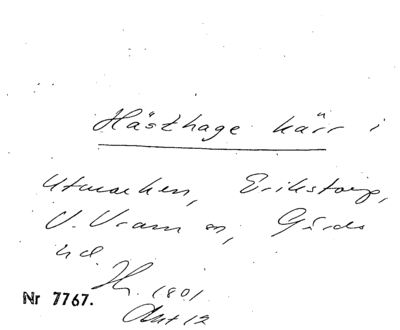 Hästhage kärr i
Utmarken, Erikstorp,
V. Vram m, Gärds
hd
Nr 7767.
1801
Akt 12